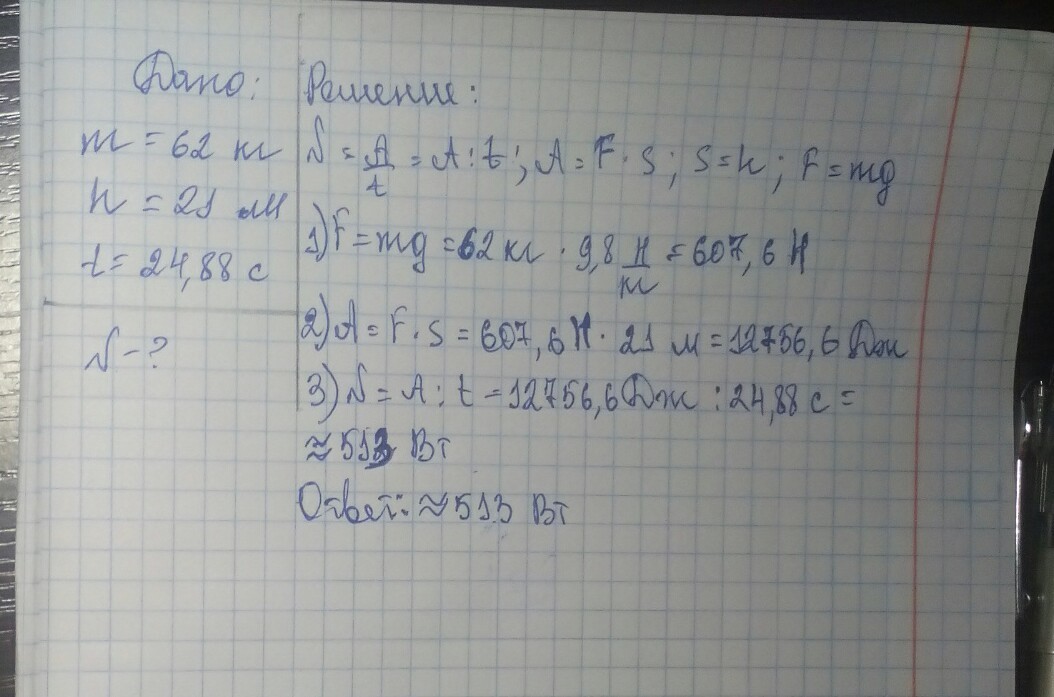 Дано:
m = 62 кг
h = 21 м
t = 24,88 с
N - ?
Решение:
N = A/t = A : t; A = F · s; s = h; F = mg
1) F = mg = 62 кг · 9,8 Н/кг = 607,6 Н
2) A = F · s = 607,6 Н · 21 м = 12756,6 Дж
3) N = A : t = 12756,6 Дж : 24,88 с =
≈ 513 Вт
Ответ: ≈ 513 Вт